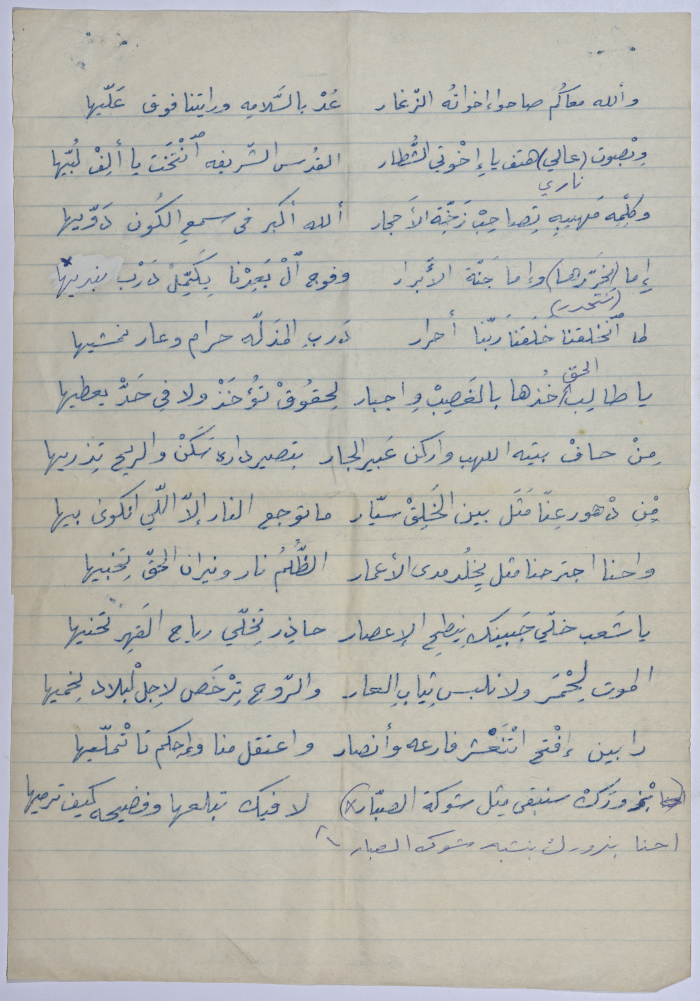 والله معاكُم صاحوا إخوانُه الزّغار عُدْ بالسَّلامِه ورايتنا فوق عَلّيها
وبْصوت (عالي) هتف يا إخْوتي الشُّطار القُدس الشّريفه ٱنْتْخَت يا ألِفْ لُبّيها
ناري
وكِلْمِه مَهيبِه تِصاحِبْ زَخِّة الأحجار الله أكبر في سمعِ الكُون دَوّيها
إما (نحَرّرها) وإما جَنّة الأبرار وفوجِ ٱلْ بَعِدْنا بِكَمِّلْ دَرْب
(ستحرر)
لما ٱنْخلقنا خَلَقنا رَبّنا أحرار دَربِ المَذلّه حرام وعار نمشيها
الحق
يا طالِب خُذها بالغَصِبْ وِاجبار لِحقوُقْ تُؤْخَذْ ولا في حَدّْ يعطيها
مِنْ حافْ بيته اللهب واركن عَبير الجار بتصير داره سَكَنْ والريح تِذريها
مِن دْهور عِنّا مَثَل بين الخَلِقْ سيّار ما توجع النار إلاّ اللّي انكوى بيها
واحنا اجترحنا مثل يِخلُد مدى الأعمار الظُّلمُ نار ونيران الحقّ تِخبيها
يا شَعب خلّي جَبينك يِنطِحِ الإعصار حاذِر تِخلّي رياح القَهِرْ تحنيها
الموت لِحْمَر ولا نلبس ثِيابِ العار والرّوح تِرْخَص لاجِلْ لبلاد نحميها
رابين إفْتح اتْنَعْشر فارعه وأنصار واعتقل منا وإحكم تا تْملّيها
بْزورَكْ سنبقى مِثل شوكة الصبّار) لا فيك تبلعها وفضيحه كيف ترميها
احنا بزورك بنشبه شوك الصبار